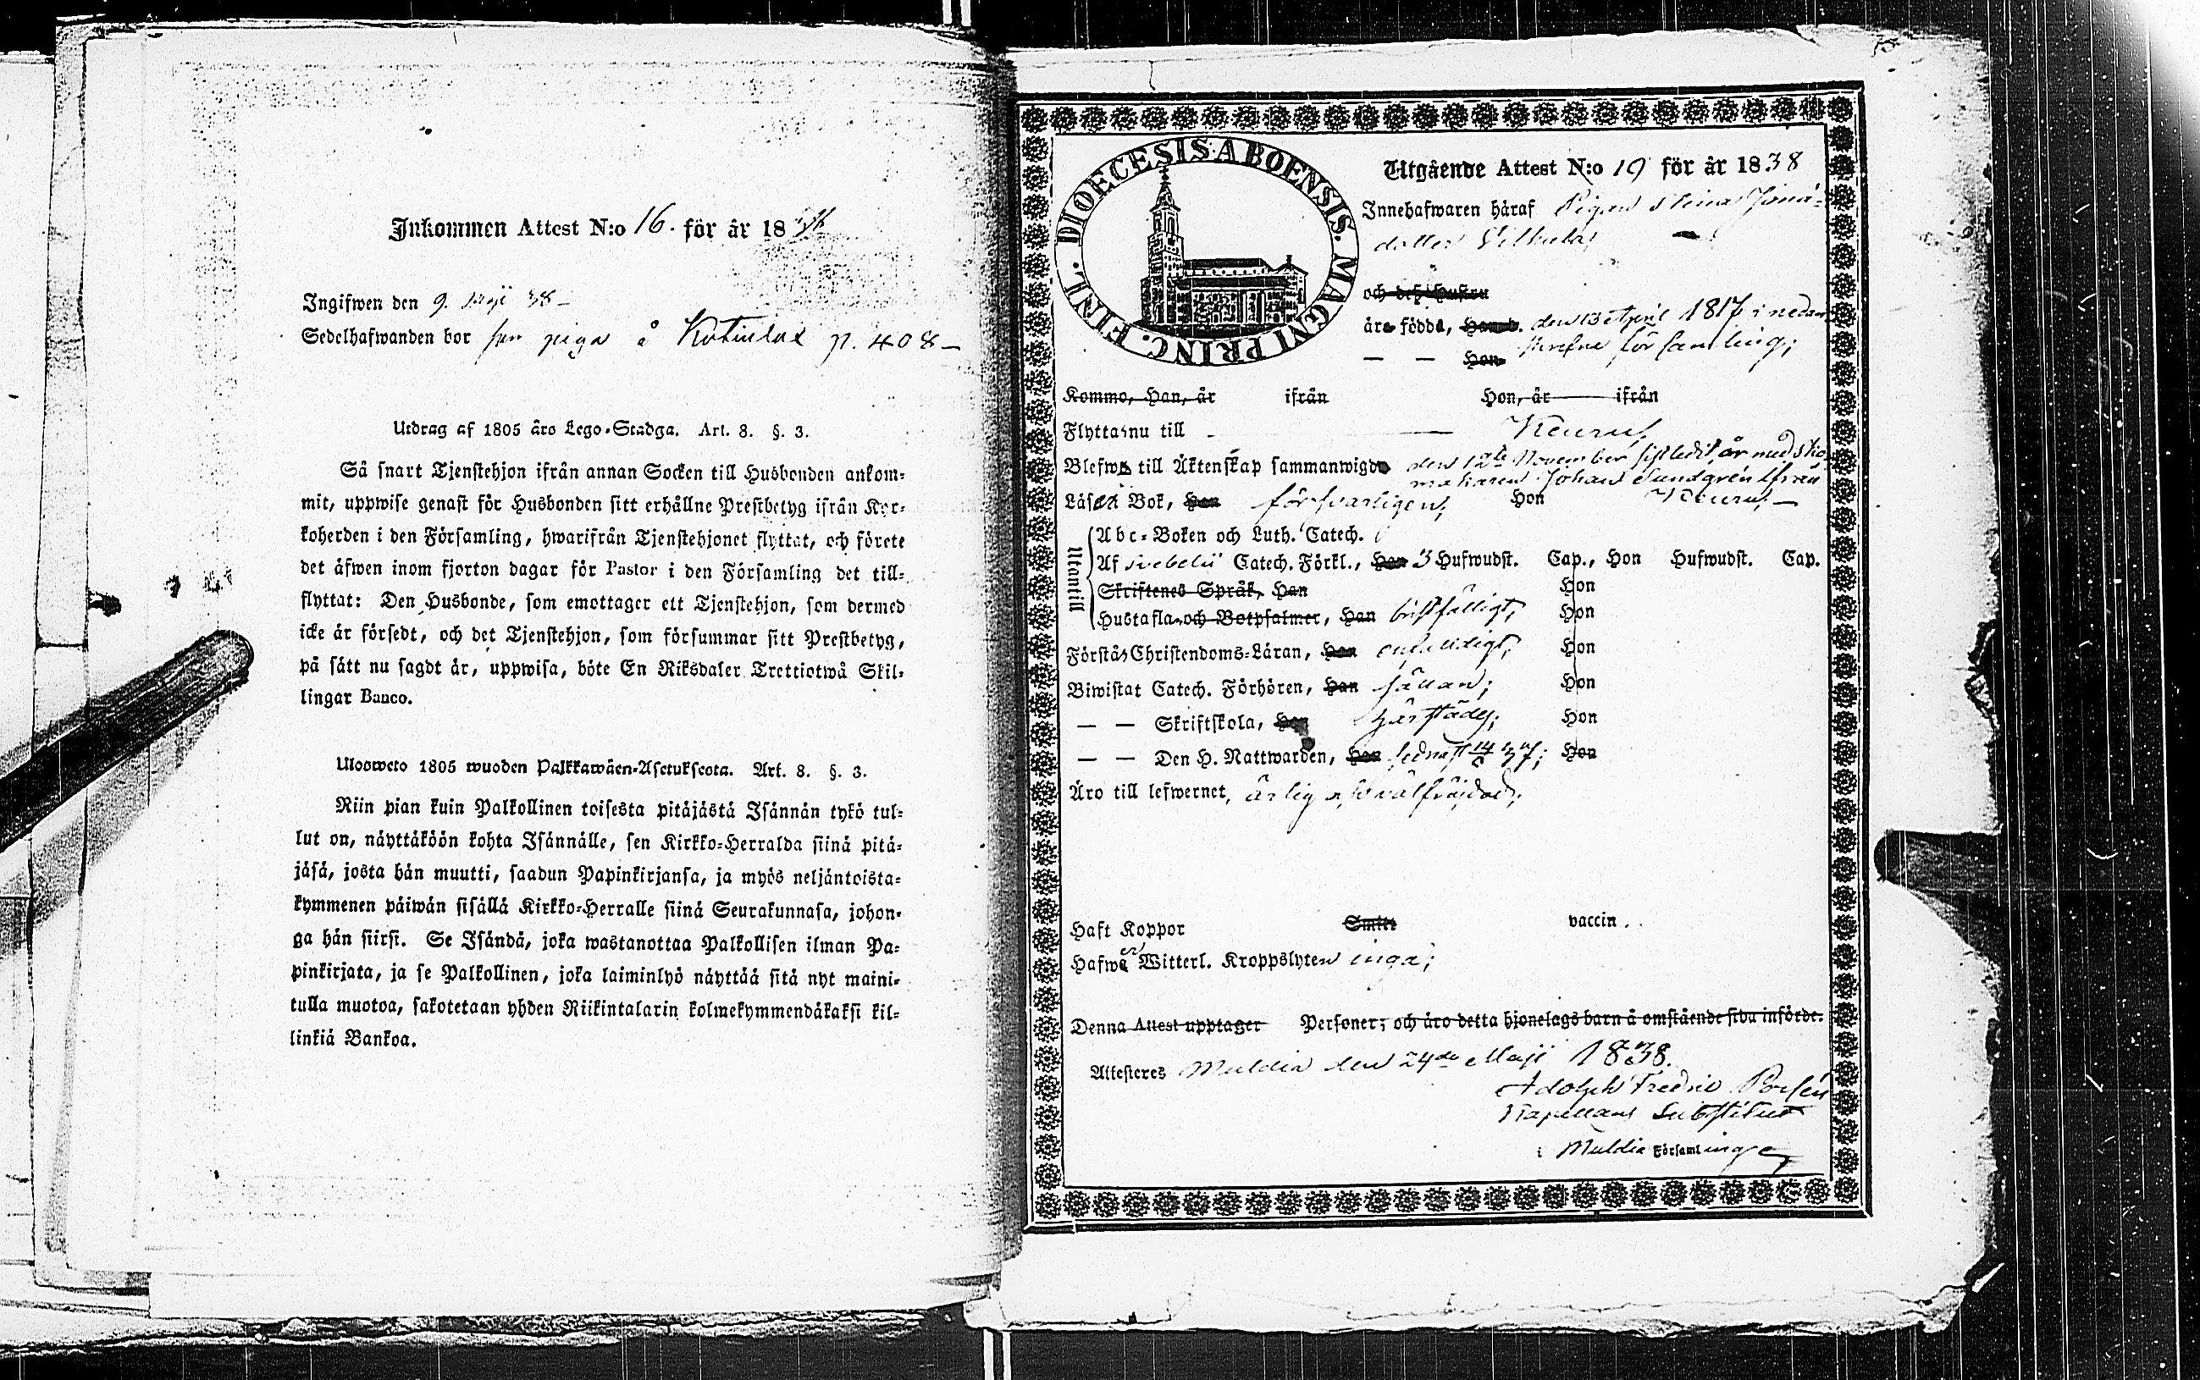 Inkommen Attest N:o 16. för år 18
Ingifwen den 9. Maji 38 –
Sedelhafwanden bor piga å p. 408 –
Utdrag af 1805 års Lego-Stadga. Art. 8. §. 3.
Så snart Tjenstehjon ifrån annan Socken till Husbonden ankom-
mit, uppwise genast för Husbonden sitt erhållne Prestbetyg ifrån Kyr-
koherden i den Församling, hwarifrån Tjenstehjonet flyttat, och förete
det äfwen inom fjorton dagar för Pastor i den Församling det till-
flyttat: Den Husbonde, som emottager ett Tjenstehjon, som dermed
icke är försedt, och det Tjenstehjon, som försummar sitt Prestbetyg,
på sätt nu sagdt är, uppwisa, böte En Riksdaler Trettiotwå Skil-
lingar Banco.
Ulosweto 1805 wuoden Palkkawäen-Asetuksesta. Art. 8. §. 3.
Niin pian kuin Palkollinen toisesta pitäjästä Isännän tykö tul-
lut on, näyttäköön kohta Isännälle, sen Kirkko-Herralda siinä pitä-
jäsä, josta hän muutti, saadun Papinkirjansa, ja myös neljäntoista-
kymmenen päiwän sisällä Kirkko-Herralle siinä Seurakunnasa, johon-
ga hän siirsi. Se Isändä, joka wastanottaa Palkollisen ilman Pa-
pinkirjata, ja se Palkollinen, joka laiminlyö näyttää sitä nyt maini-
tulla muotoa, sakotetaan yhden Riikintalarin kolmekymmendäkaksi kil-
linkiä Bankoa.
DIOECESIS ABOENSIS. MAGNI PRINC. FINL.
Utgående Attest N:o 19 för år 1838
Innehafwaren häraf Pigan Stina Jona-
dotter
och deß Hustru
äro födde, Han d. den 13 April 1817 i nedan-
— — Hon skrefne församling;
Kommo, Han, år ifrån Hon, år ifrån
Flytta nu till — Keuru,
Blefwo till Äktenskap sammanwigde den 12te November sistledit år med Sko-
makaren Johan Sundgrén ifrån
Läsa i Bok, Han försvarligen, Hon Keuru, —
Utantill
Abc-Boken och Luth. Catech.
Af Svebelii Catech. Förkl., Han 3 Hufwudst. Cap., Hon Hufwudst. Cap.
Skriftenes Språk, Han Hon
Hustafla och Botpsalmer, Han bristfälligt, Hon
Förstå Christendoms-Läran, Han enfaldigt, Hon
Biwistat Catech. Förhören, Han sällan; Hon
— — Skriftskola, Han härstädes; Hon
— — Den H. Nattwarden, Han sednast Hon
Äro till lefwernet, ärlig välfräjdad;
Haft Koppor Smitt vaccin.
Hafwa Witterl. Kroppslyten inga;
Denna Attest upptager Personer; och äro detta hjonelags barn å omstående sida införde.
Attesteres Muldia den 24de Maji 1838.
Adolph Fredric
Kapellans Substitut
i Muldia Församlinge